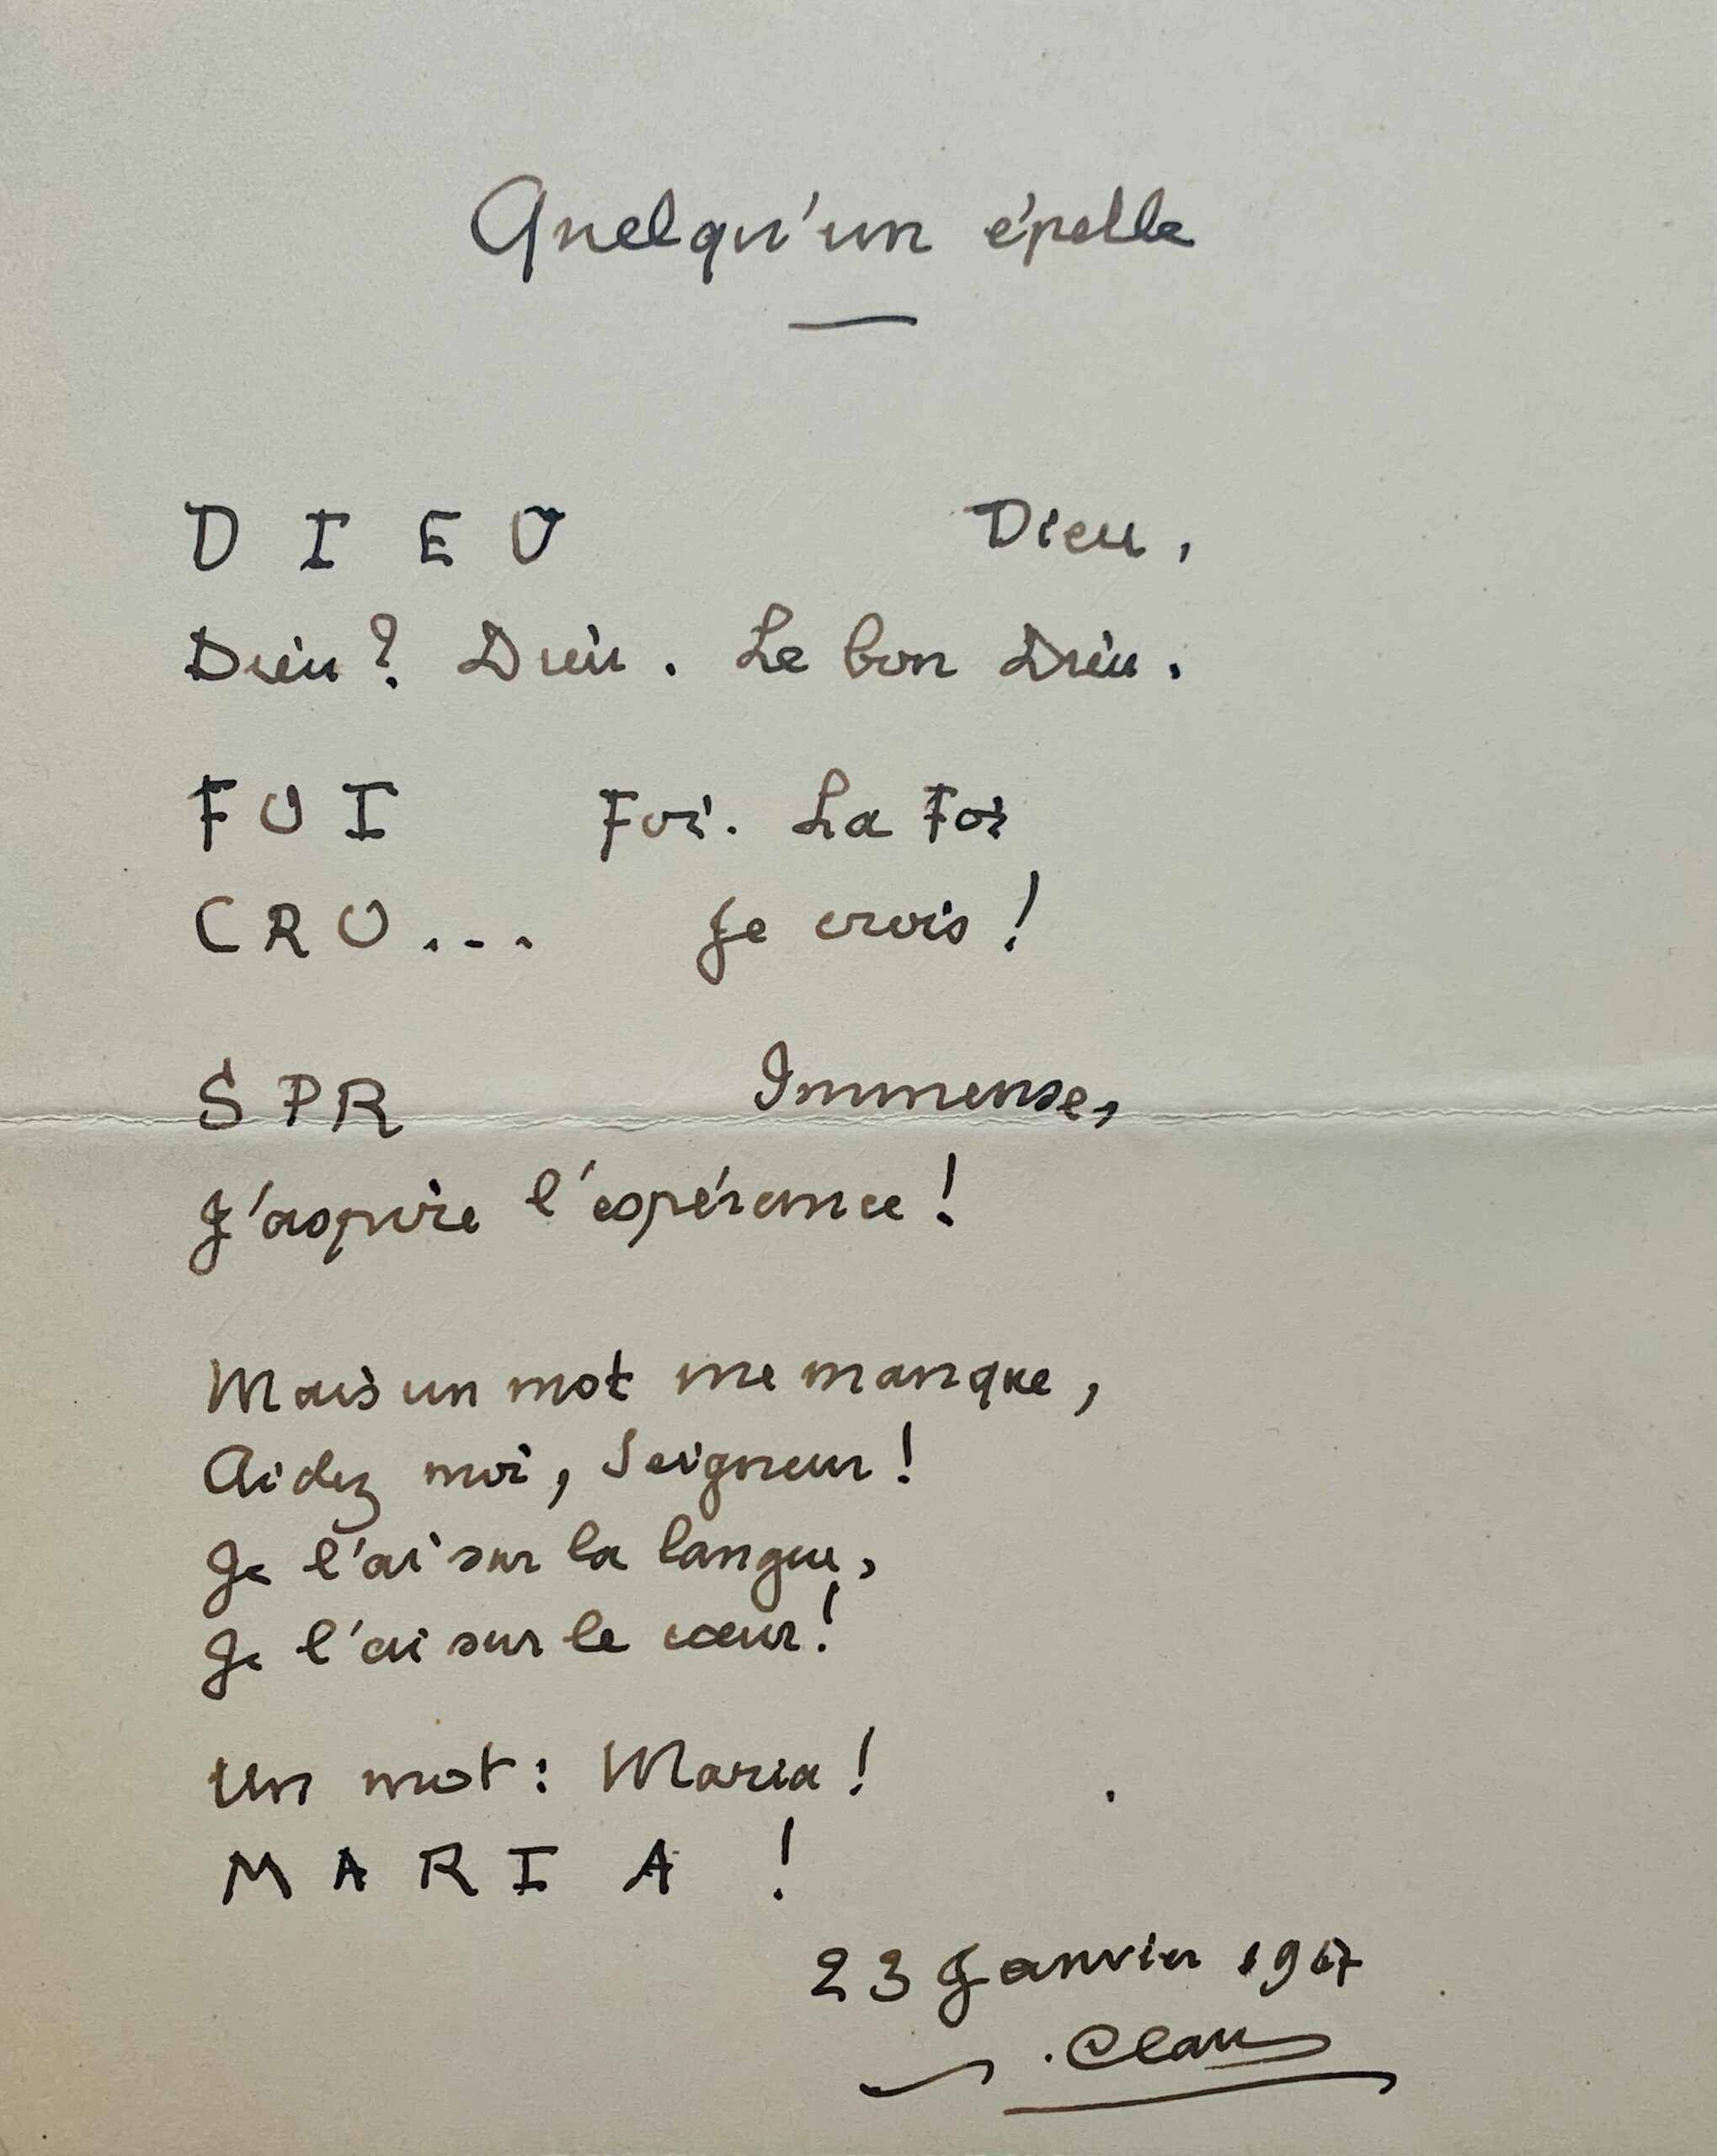 Quelqu'un épelle
D I E U Dieu,
Dieu? Dieu. Le bon Dieu.
F O I Foi. La Foi
C R O... Je crois!
S P R Immense,
J'aspire l'espérance!
Mais un mot me manque,
Aidez moi, Seigneur!
Je l'ai sur la langue,
Je l'ai sur le cœur!
Un mot: Maria!
M A R I A !
23 Janvier 1967